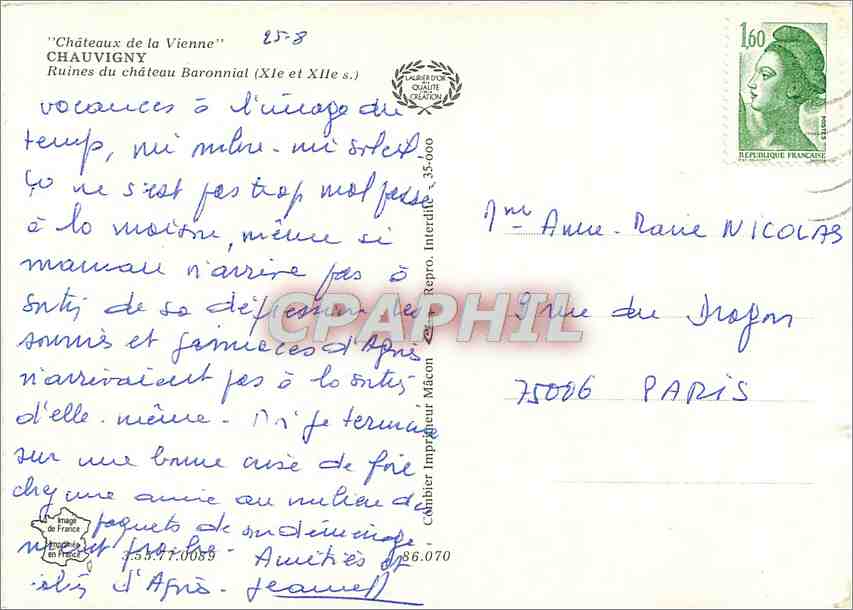 "Châteaux de la Vienne"
25-8
CHAUVIGNY
Ruines du château Baronnial (XIe et XIIe s.)
LAURIER D'OR
DE LA
QUALITÉ
CRÉATION
1,60
POSTES
REPUBLIQUE FRANÇAISE
vacances à l'image du
temps, mi ombre - mi soleil.
ça ne s'est pas trop mal passé
à la maison, même si
maman n'arrive pas à
sortir de sa dépression, les
sourires et grimaces d'Agnès
n'arrivaient pas à la sortir
d'elle-même. Moi je termine
sur une bonne crise de foie
chez une amie au milieu de
paquets de son déménage
ment proche. Amitiés et
d'Agnès. Jeanne
Mme Anne-Marie NICOLAS
9 rue du Dragon
75006 PARIS
Combier Imprimeur Mâcon
Repro. Interdite - 35-000
CPAPHIL
Image
de France
Imprimée
en France
86.070